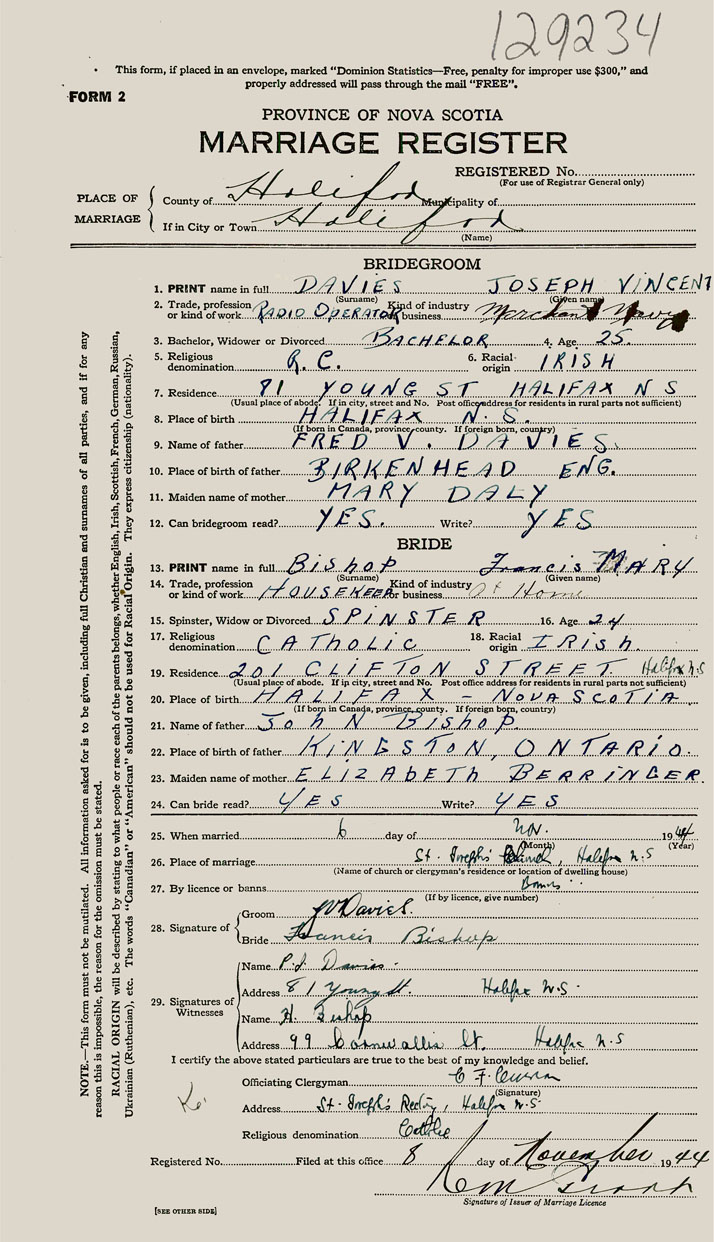 129234
This form, if placed in an envelope, marked “Dominion Statistics—Free, penalty for improper use $300,” and
properly addressed will pass through the mail “FREE”.
FORM 2
PROVINCE OF NOVA SCOTIA
MARRIAGE REGISTER
REGISTERED No.
(For use of Registrar General only)
PLACE OF MARRIAGE
County of Halifax Municipality of
If in City or Town Halifax
(Name)
BRIDEGROOM
1. PRINT name in full DAVIES JOSEPH VINCENT
(Surname) (Given name)
2. Trade, profession or kind of work RADIO OPERATOR Kind of industry or business Merchant Navy
3. Bachelor, Widower or Divorced BACHELOR 4. Age 25
5. Religious denomination R.C. 6. Racial origin IRISH
7. Residence 81 YOUNG ST HALIFAX N S
(Usual place of abode. If in city, street and No. Post office address for residents in rural parts not sufficient)
8. Place of birth HALIFAX N.S.
(If born in Canada, province, county. If foreign born, country)
9. Name of father FRED V. DAVIES
10. Place of birth of father BIRKENHEAD ENG.
11. Maiden name of mother MARY DALY
12. Can bridegroom read? YES. Write? YES
BRIDE
13. PRINT name in full Bishop Francis MARY
(Surname) (Given name)
14. Trade, profession or kind of work HOUSEKEEPER Kind of industry or business At Home
15. Spinster, Widow or Divorced SPINSTER 16. Age 24
17. Religious denomination CATHOLIC 18. Racial origin IRISH.
19. Residence 201 CLIFTON STREET Halifax N.S
(Usual place of abode. If in city, street and No. Post office address for residents in rural parts not sufficient)
20. Place of birth HALIFAX - NOVA SCOTIA
(If born in Canada, province, county. If foreign born, country)
21. Name of father JOHN BISHOP.
22. Place of birth of father KINGSTON, ONTARIO.
23. Maiden name of mother ELIZABETH BERRINGER.
24. Can bride read? YES Write? YES
25. When married 6 day of Nov. 1944
(Month) (Year)
26. Place of marriage St. Joseph's Church, Halifax N.S
(Name of church or clergyman's residence or location of dwelling house)
27. By licence or banns Banns
(If by licence, give number)
28. Signature of
Groom JV Davies.
Bride Francis Bishop
29. Signatures of Witnesses
Name P.J. Davies
Address 81 Young St. Halifax N.S.
Name H. Bishop
Address 99 Cornwallis St. Halifax N.S
I certify the above stated particulars are true to the best of my knowledge and belief.
Officiating Clergyman C F Curran
(Signature)
Address St. Joseph's Rectory, Halifax N.S.
Religious denomination Catholic
Registered No. Filed at this office 8 day of November 1944
Signature of Issuer of Marriage Licence
[SEE OTHER SIDE]
NOTE.—This form must not be mutilated. All information asked for is to be given, including full Christian and surnames of all parties, and if for any
reason this is impossible, the reason for the omission must be stated.
RACIAL ORIGIN will be described by stating to what people or race each of the parents belongs, whether English, Irish, Scottish, French, German, Russian,
Ukrainian (Ruthenian), etc. The words “Canadian” or “American” should not be used for Racial Origin. They express citizenship (nationality).